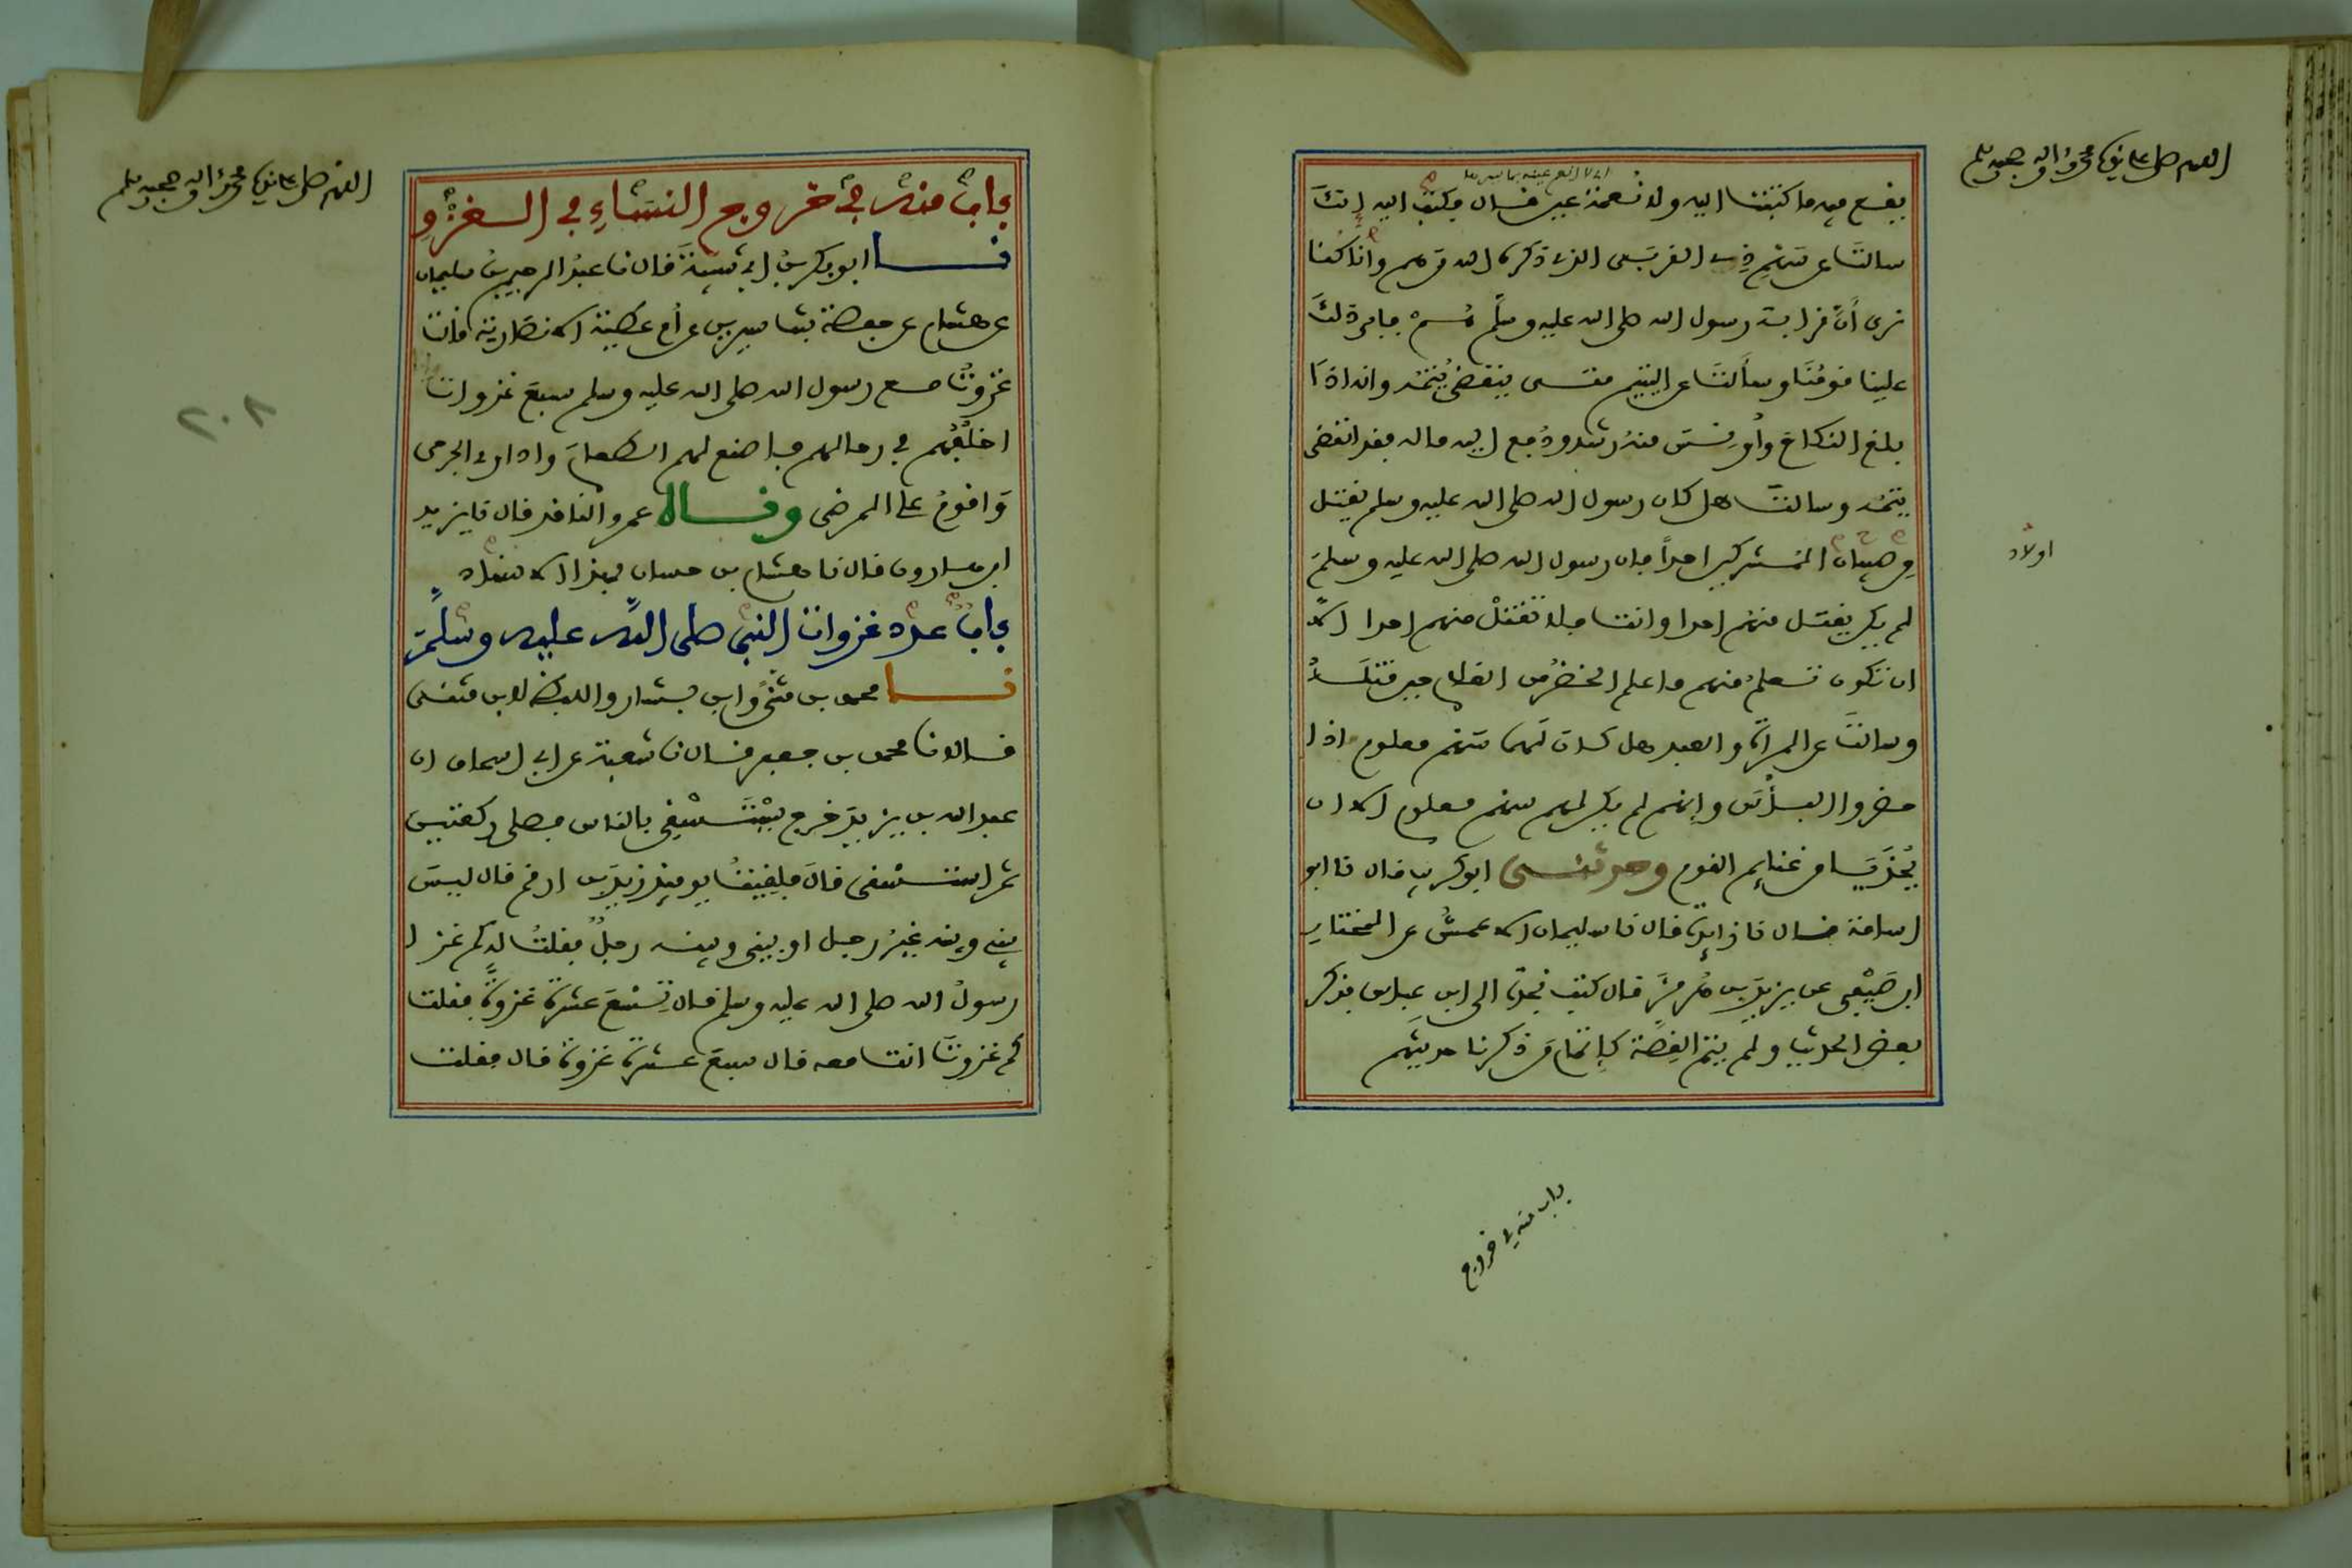 اللهم صل على نبينا محمد واله وصحبه وسلم
يقع فيه ما كتبت اليه ولا نعمة عين قال فكتب اليه انك
سالت عن سهم ذي القربى الذي ذكره الله من هم وانا كنا
نرى أن قرابة رسول الله صلى الله عليه وسلم هم نحن فابى ذلك
علينا قومنا وسألت عن اليتيم متى ينقضي يتمه وانه اذا
بلغ النكاح وأونس منه رشد ودفع اليه ماله فقد انقضى
يتمه وسالت هل كان رسول الله صلى الله عليه وسلم يقتل
من صبيان المشركين احدا فان رسول الله صلى الله عليه وسلم
اولاد
لم يكن يقتل منهم احدا وانت فلا تقتل منهم احدا الا
ان تكون تعلم منهم ما علم الخضر من الغلام حين قتله
وسالت عن المرأة والعبد هل كان لهما سهم معلوم اذا
حضروا البأس وانهم لم يكن لهم سهم معلوم الا ان
يحذيا من غنايم القوم وحدثنى ابو كريب قال نا ابو
اسامة قال نا زايدة قال نا سليمان الاعمش عن المختار
ابن صيفي عن يزيد بن هرمز قال كتب نجدة الى ابن عباس فذكر
بعض الحديث ولم يتم القصة كإتمام من ذكرنا حديثهم
باب منه في خروج
اللهم صل على نبينا محمد واله وصحبه وسلم
باب منه في خروج النساء في الغزو
نا ابو بكر بن ابي شيبة قال نا عبد الرحيم بن سليمان
عن هشام عن حفصة بنت سيرين عن أم عطية الانصارية قالت
غزوت مع رسول الله صلى الله عليه وسلم سبع غزوات
٢٠٨
اخلفهم في رحالهم فاصنع لهم الطعام واداوي الجرحى
واقوم على المرضى وقال عمرو الناقد قال نا يزيد
ابن هارون قال نا هشام بن حسان بهذا الاسناد
باب عدد غزوات النبي صلى الله عليه وسلم
نا محمد بن مثنى وابن بشار واللفظ لابن مثنى
قالا نا محمد بن جعفر قال نا شعبة عن ابي اسحاق ان
عبد الله بن يزيد خرج يستسقي بالناس فصلى ركعتين
ثم استسقى قال فلقيت يوميذ زيد بن ارقم قال ليس
بيني وبينه غير رجل او بيني وبينه رجل فقلت له كم غزا
رسول الله صلى الله عليه وسلم قال تسع عشرة غزوة فقلت
كم غزوت انت معه قال سبع عشرة غزوة قال فقلت